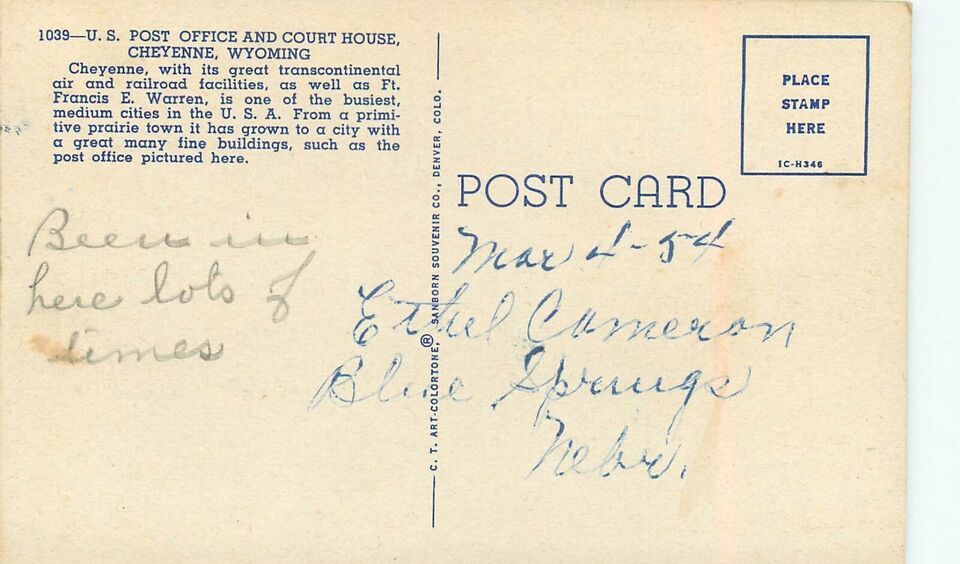 1039—U. S. POST OFFICE AND COURT HOUSE,
CHEYENNE, WYOMING
Cheyenne, with its great transcontinental
air and railroad facilities, as well as Ft.
Francis E. Warren, is one of the busiest,
medium cities in the U. S. A. From a primi-
tive prairie town it has grown to a city with
a great many fine buildings, such as the
post office pictured here.
Been in
here lots of
times
C. T. ART-COLORTONE, ® SANBORN SOUVENIR CO., DENVER, COLO.
PLACE
STAMP
HERE
1C-H346
POST CARD
Mar 4-54
Ethel Cameron
Blue Springs
Nebr.